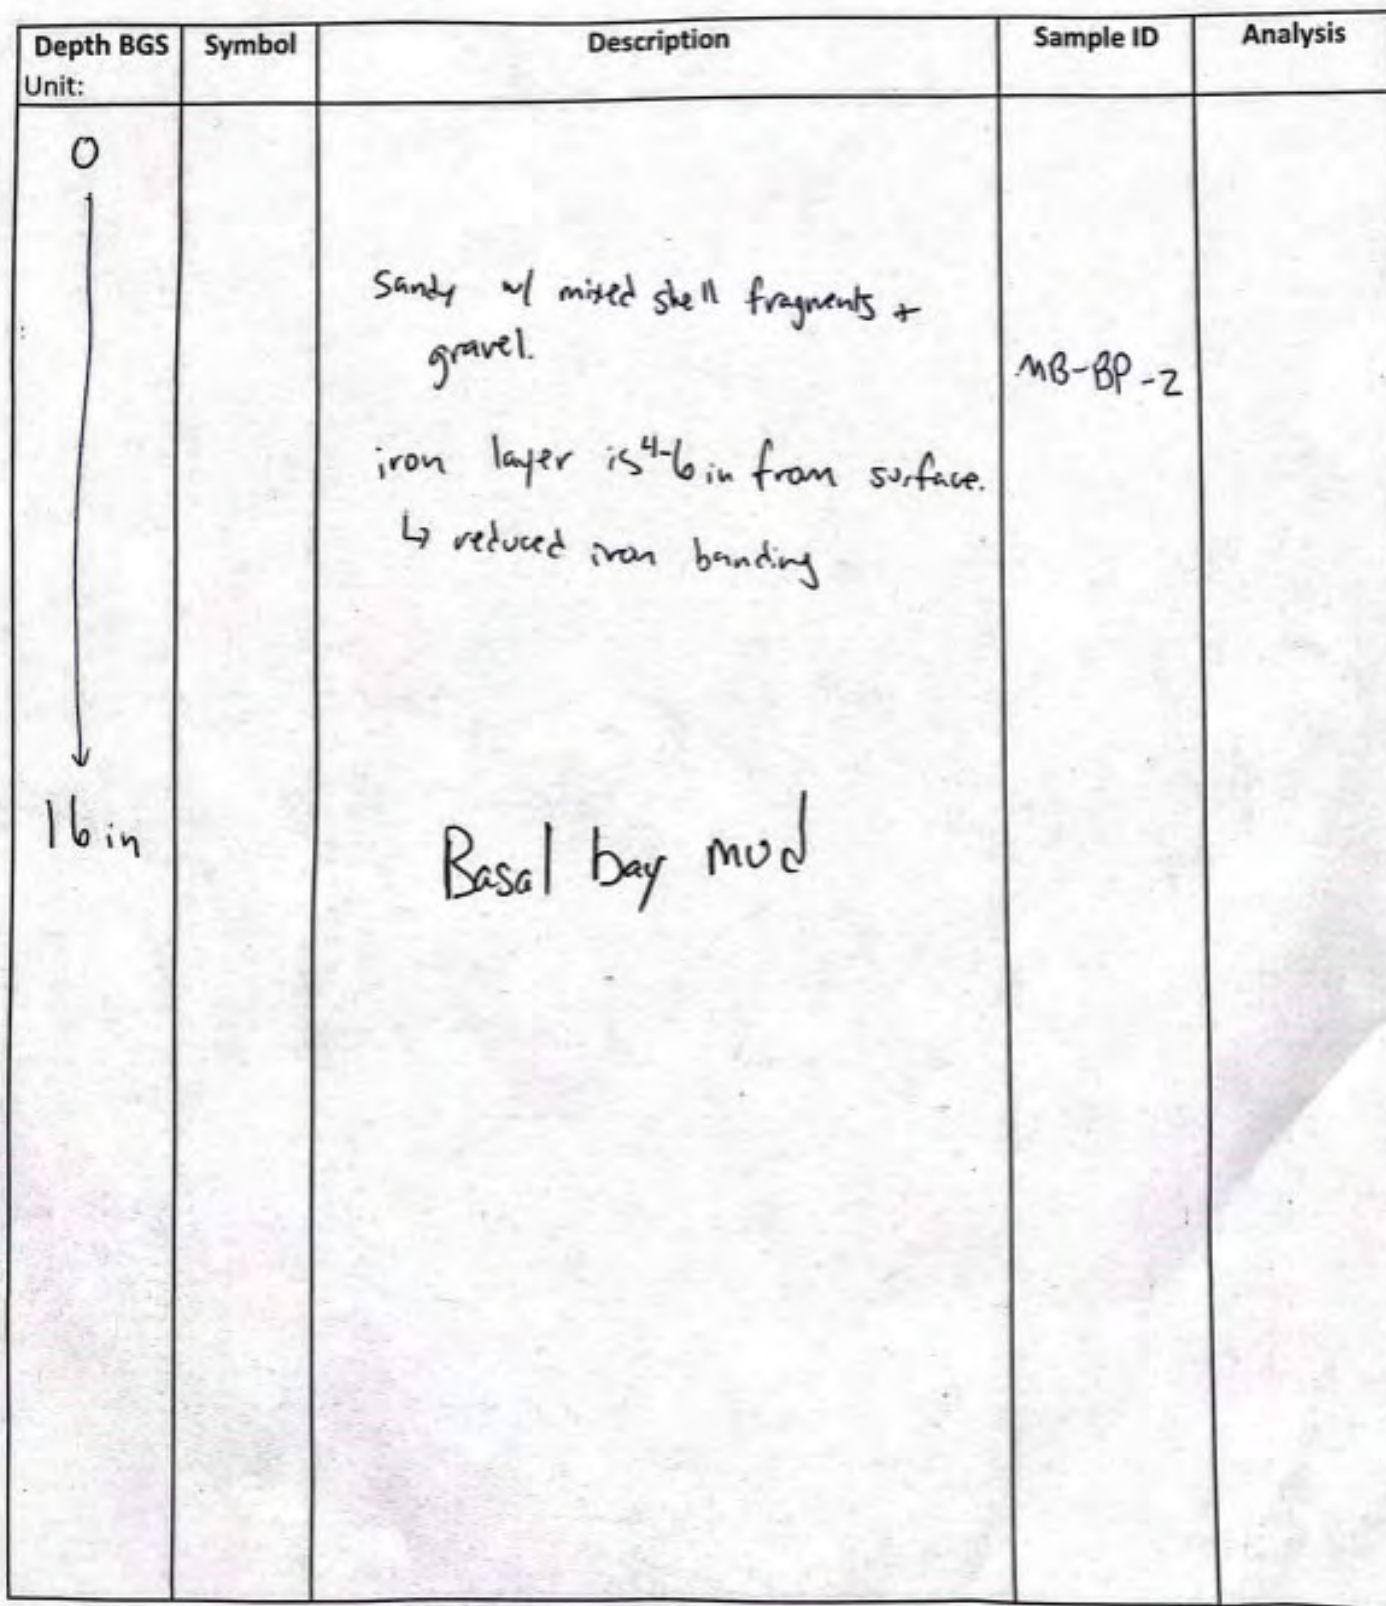 Depth BGS Symbol Description Sample ID Analysis
Unit:
0
Sandy w/ mixed shell fragments +
gravel.
MB-BP-2
iron layer is 4-6 in from surface.
↳ reduced iron banding
16 in
Basal bay mud